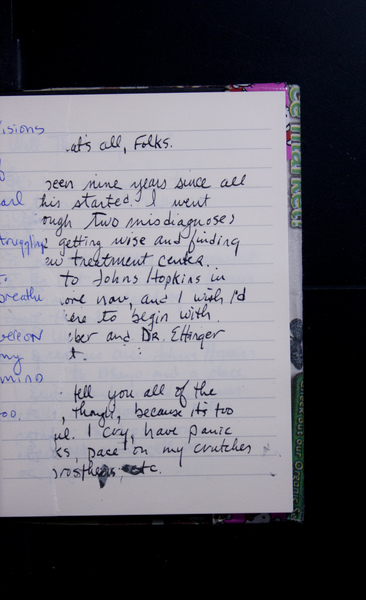 isions
at's all, Folks.
been nine years since all
this started. I went
ough two misdiagnoses
truggling
getting wise and finding
treatment center.
to Johns Hopkins in
breathe
ore now, and I wish I'd
ere to begin with
ber and DR. Ettinger
my
t.
mind
tell you all of the
oo.
, though, because it's too
ul. I cry, have panic
ks, pace on my crutches
prosthesis, etc.